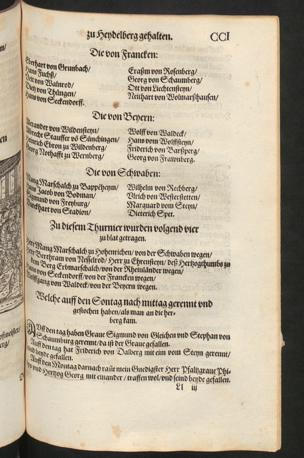 zu Heydelberg gehalten. CCI
Die von Francken:
Eberhart von Grumbach/ Eraßm von Rosenberg/
Hans Fuchs/ Georg von Schaumberg/
Veit von Walnrod/ Ott von Liechtenstein/
Dietz von Thüngen/ Reinhart von Wolmarßhausen/
Hans von Seckendorff.
Die von Beyern:
Alexander von Wildensteyn/ Wolff von Waldeck/
Albrecht Stauffer zü Sünchingen/ Hans vom Wolffsteyn/
Heinrich Ebron zu Wildenberg/ Friderich von Parsperg/
Georg Nothafft zu Wernberg/ Georg von Frawnberg.
Die von Schwaben:
Mang Marschalch zu Bappeheym/ Wilhelm von Rechberg/
Hans Jacob von Bodman/ Ulrich von Westersteten/
Sigmund von Freyburg/ Marquard vom Steyn/
Burckhart von Stadion/ Dieterich Spet.
Zu diesem Thurnier wurden volgend vier
zu blat getragen.
Herr Mang Marschalck zu Hohenrichen/ von der Schwaben wegen/
Herr Bertram von Nesselrod/ Herr zu Ehrensteyn/ deß Hertzogthumbs zu
dem Berg Erbmarschalck/ von der Rheinländer wegen/
Hans von Seckendorff/ von der Francken wegen/
Wolffgang von Waldeck/ von der Beyern wegen.
Welche auff den Sontag nach mittag gerennt vnd
gestochen haben/ als man an die her-
berg kam.
Auff den tag haben Graue Sigmund von Gleichen vnd Stephan von
Schaumburg gerennt/ da ist der Graue gefallen.
Auff den tag hat Friderich von Dalberg mit eim vom Steyn gerennt/
vnd beyde gefallen.
Auff den Montag darnach rañt mein Gnedigster Herr Pfaltzgraue Phi-
lips vnd Hertzog Georg mit einander/ traffen wol/ vnd seind beyde gefallen.
Ll iij